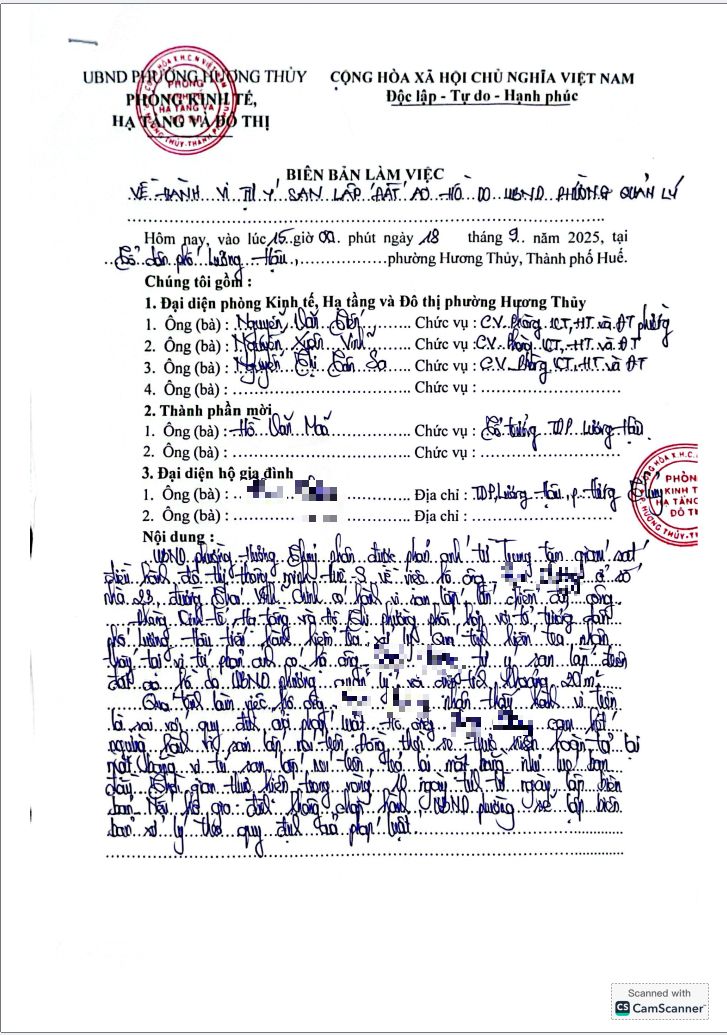 UBND PHƯỜNG HƯƠNG THỦY
PHÒNG KINH TẾ,
HẠ TẦNG VÀ ĐÔ THỊ
CỘNG HÒA XÃ HỘI CHỦ NGHĨA VIỆT NAM
Độc lập - Tự do - Hạnh phúc
BIÊN BẢN LÀM VIỆC
VỀ HÀNH VI TỰ Ý SAN LẤP ĐẤT AO HỒ DO UBND PHƯỜNG QUẢN LÝ
Hôm nay, vào lúc 15 giờ 00 phút ngày 18 tháng 9 năm 2025, tại
Tổ dân phố Lương Hậu, phường Hương Thủy, Thành phố Huế.
Chúng tôi gồm :
1. Đại diện phòng Kinh tế, Hạ tầng và Đô thị phường Hương Thủy
1. Ông (bà) : Nguyễn Văn Chức vụ : CV. Phòng KT, HT và ĐT phường
2. Ông (bà) : Nguyễn Xuân Vinh Chức vụ : CV. Phòng KT, HT và ĐT
3. Ông (bà) : Nguyễn Thị Chức vụ : CV. Phòng KT, HT và ĐT
4. Ông (bà) : Chức vụ :
2. Thành phần mời
1. Ông (bà) : Hồ Văn Chức vụ : Tổ trưởng TDP Lương Hậu
2. Ông (bà) : Chức vụ :
3. Đại diện hộ gia đình
1. Ông (bà) : Địa chỉ : TDP Lương Hậu, p. Hương Thủy
2. Ông (bà) : Địa chỉ :
Nội dung :
UBND phường Hương Thủy nhận được phản ánh từ Trung tâm giám sát
điều hành đô thị thông minh về việc hộ ông ở số
nhà 23 đường có hành vi san lấp lấn chiếm đất công
Phòng Kinh tế, Hạ tầng và Đô thị phường phối hợp với tổ trưởng dân
phố Lương Hậu tiến hành kiểm tra xử lý. Qua kiểm tra nhận
thấy tại vị trí phản ánh có hộ ông tự ý san lấp trên
đất ao hồ do UBND phường quản lý với diện tích khoảng 20m²
Qua làm việc hộ ông nhận thấy hành vi trên
là sai với quy định của pháp luật. Hộ ông cam kết
ngừng hành vi san lấp nêu trên, đồng thời sẽ thực hiện hoàn trả lại
mặt bằng vị trí san lấp nêu trên trả lại mặt bằng như lúc ban
đầu. Thời gian thực hiện trong vòng 10 ngày từ ngày lập biên
bản. Nếu hộ gia đình không chấp hành, UBND phường sẽ lập biên
bản xử lý theo quy định của pháp luật
Scanned with
CS CamScanner